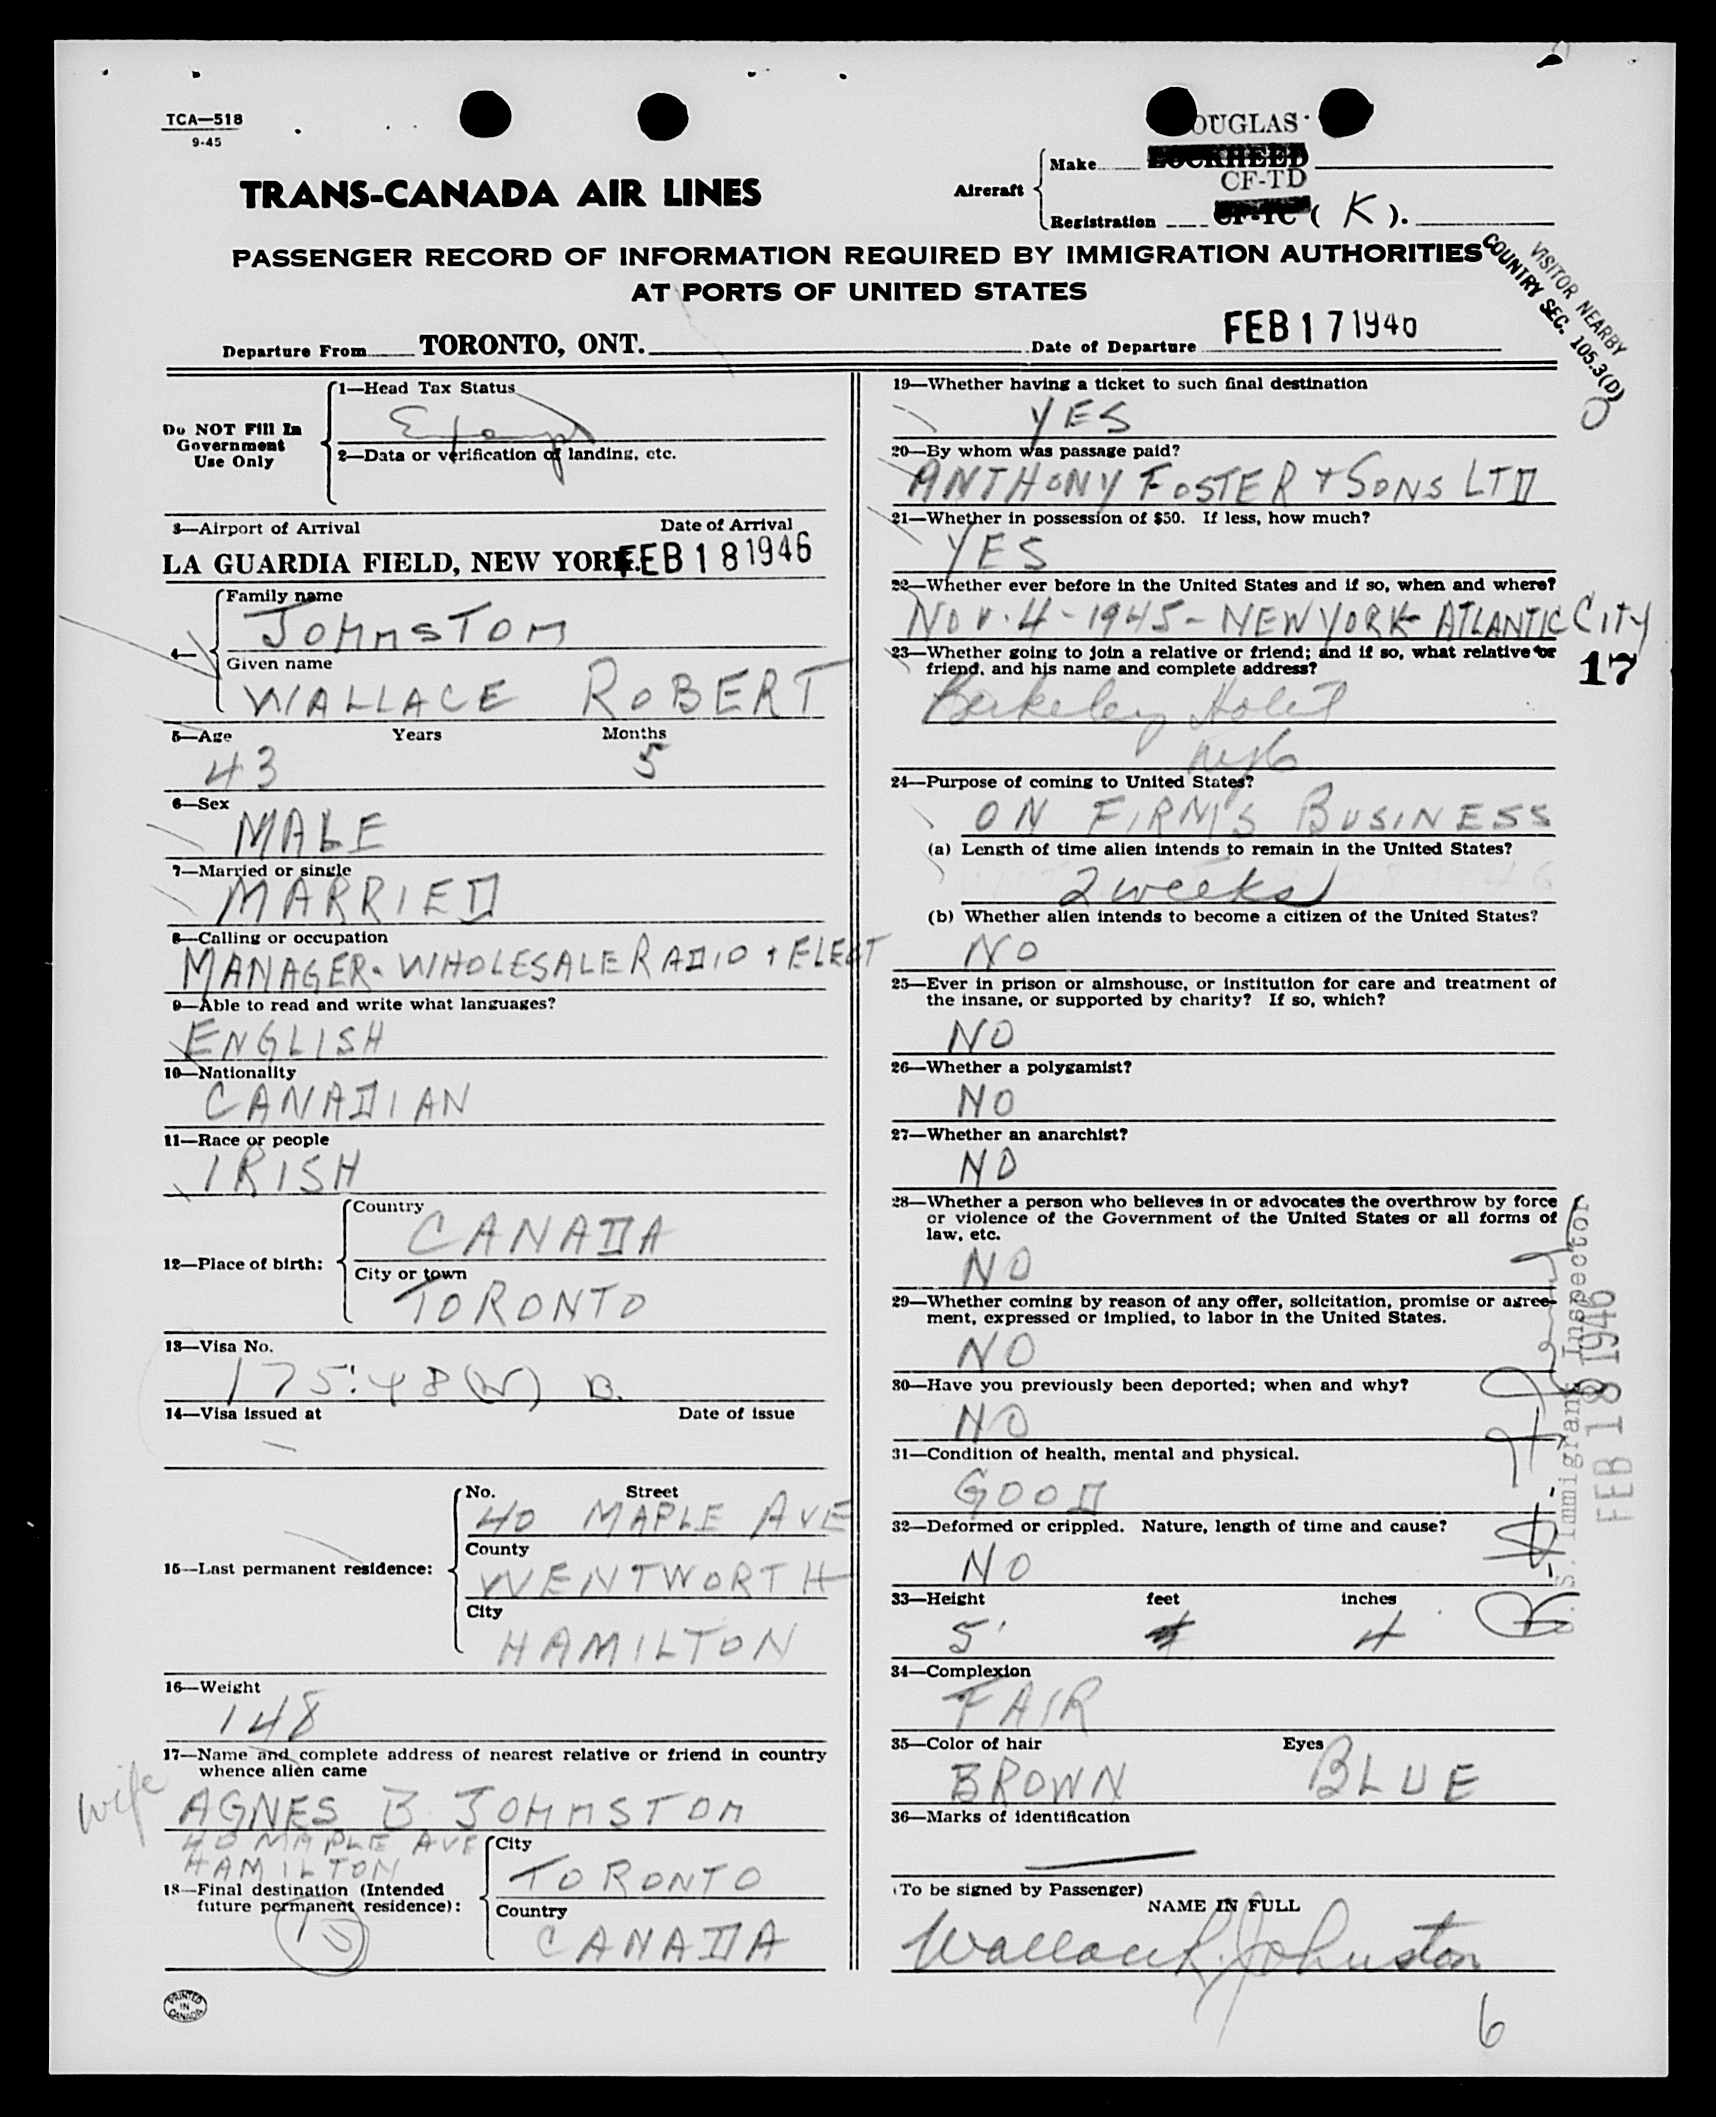 TCA—518
9-45
TRANS-CANADA AIR LINES
Aircraft
Make
OUGLAS
LOCKHEED
CF-TD
Registration CF-TC ( K ).
PASSENGER RECORD OF INFORMATION REQUIRED BY IMMIGRATION AUTHORITIES
AT PORTS OF UNITED STATES
VISITOR NEARBY
COUNTRY SEC. 105.3(D)
Departure From TORONTO, ONT.
Date of Departure FEB 17 1946
Do NOT Fill In
Government
Use Only
1—Head Tax Status
Exempt
2—Data or verification of landing, etc.
3—Airport of Arrival Date of Arrival
LA GUARDIA FIELD, NEW YORK. FEB 18 1946
4—
Family name
JOHNSTON
Given name
WALLACE ROBERT
5—Age Years Months
43 5
6—Sex
MALE
7—Married or single
MARRIED
8—Calling or occupation
MANAGER - WHOLESALE RADIO + ELECT
9—Able to read and write what languages?
ENGLISH
10—Nationality
CANADIAN
11—Race or people
IRISH
12—Place of birth:
Country
CANADA
City or town
TORONTO
13—Visa No.
175.48(W) B.
14—Visa issued at Date of issue
—
15—Last permanent residence:
No. Street
40 MAPLE AVE
County
WENTWORTH
City
HAMILTON
16—Weight
148
17—Name and complete address of nearest relative or friend in country
whence alien came
wife
AGNES B JOHNSTON
40 MAPLE AVE
HAMILTON
18—Final destination (Intended
future permanent residence):
City
TORONTO
Country
CANADA
PRINTED
IN
CANADA
19—Whether having a ticket to such final destination
YES
20—By whom was passage paid?
ANTHONY FOSTER + SONS LTD
21—Whether in possession of $50. If less, how much?
YES
22—Whether ever before in the United States and if so, when and where?
NOV. 4 - 1945 - NEW YORK - ATLANTIC CITY
23—Whether going to join a relative or friend; and if so, what relative or
friend, and his name and complete address?
17
Berkeley Hotel
NYC
24—Purpose of coming to United States?
ON FIRM'S BUSINESS
(a) Length of time alien intends to remain in the United States?
2 weeks
(b) Whether alien intends to become a citizen of the United States?
NO
25—Ever in prison or almshouse, or institution for care and treatment of
the insane, or supported by charity? If so, which?
NO
26—Whether a polygamist?
NO
27—Whether an anarchist?
NO
28—Whether a person who believes in or advocates the overthrow by force
or violence of the Government of the United States or all forms of
law, etc.
NO
29—Whether coming by reason of any offer, solicitation, promise or agree-
ment, expressed or implied, to labor in the United States.
NO
30—Have you previously been deported; when and why?
NO
31—Condition of health, mental and physical.
GOOD
32—Deformed or crippled. Nature, length of time and cause?
NO
33—Height feet inches
5' 4
34—Complexion
FAIR
35—Color of hair Eyes
BROWN BLUE
36—Marks of identification
—
U.S. Immigrant Inspector
FEB 18 1946
(To be signed by Passenger)
NAME IN FULL
Wallace R. Johnston
6